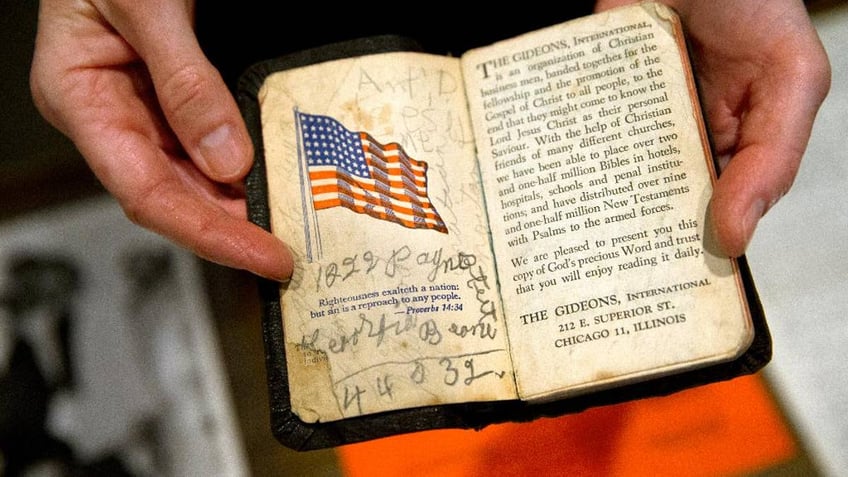 1822 Payne
Righteousness exalteth a nation:
but sin is a reproach to any people.
—Proverbs 14:34
44032
THE GIDEONS, INTERNATIONAL,
is an organization of Christian
business men, banded together for
fellowship and the promotion of the
Gospel of Christ to all people, to the
end that they might come to know the
Lord Jesus Christ as their personal
Saviour. With the help of Christian
friends of many different churches,
we have been able to place over two
and one-half million Bibles in hotels,
hospitals, schools and penal institu-
tions; and have distributed over nine
and one-half million New Testaments
with Psalms to the armed forces.
We are pleased to present you this
copy of God's precious Word and trust
that you will enjoy reading it daily.
THE GIDEONS, INTERNATIONAL
212 E. SUPERIOR ST.
CHICAGO 11, ILLINOIS